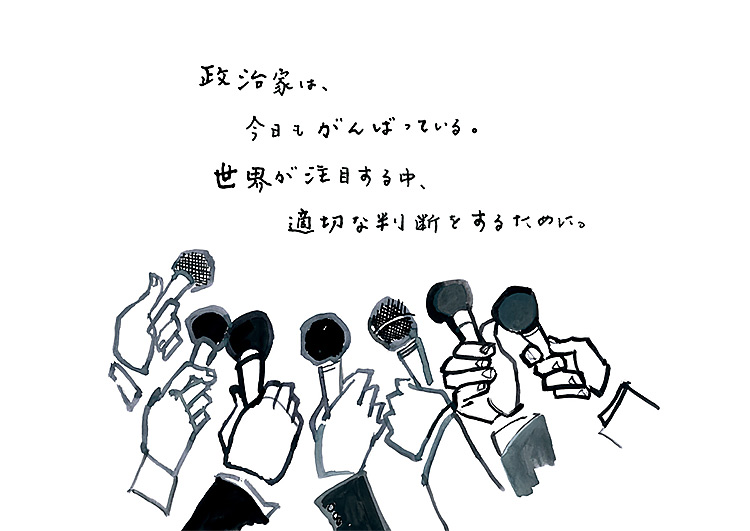 政治家は、
今日もがんばっている。
世界が注目する中、
適切な判断をするために。